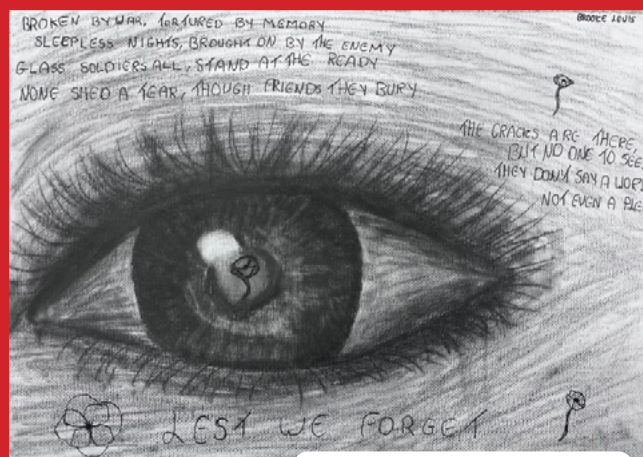 BROKEN BY WAR, TORTURED BY MEMORY
SLEEPLESS NIGHTS, BROUGHT ON BY THE ENEMY
GLASS SOLDIERS ALL, STAND AT THE READY
NONE SHED A TEAR, THOUGH FRIENDS THEY BURY
BROOKE LOUIS
THE CRACKS ARE THERE,
BUT NO ONE TO SEE,
THEY DON'T SAY A
NOT EVEN A
LEST WE FORGET